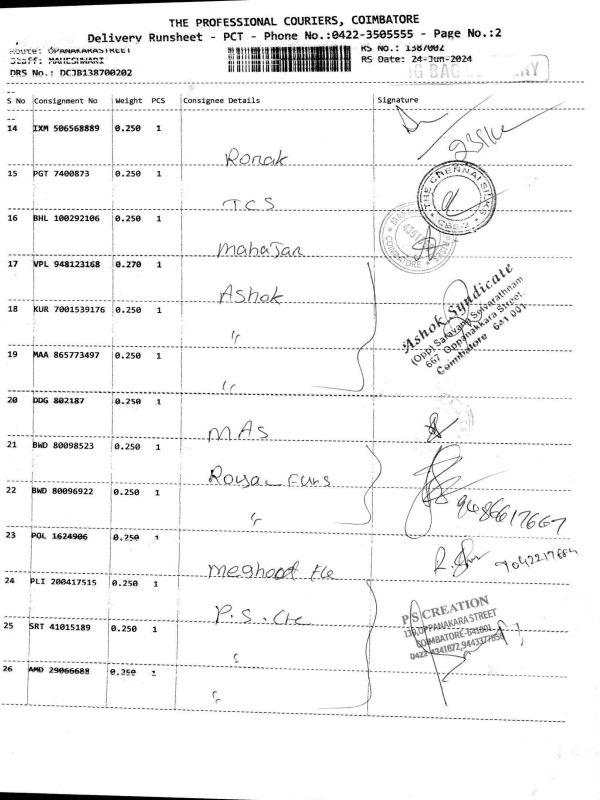 THE PROFESSIONAL COURIERS, COIMBATORE
Delivery Runsheet - PCT - Phone No.:0422-3505555 - Page No.:2
Route: OPANAKARASTREET
RS No.: 1387002
Staff: MAHESHWARI
RS Date: 24-Jun-2024
DRS No.: DCJB138700202
BAG
S No Consignment No Weight PCS Consignee Details Signature
14 IXM 506568889 0.250 1 Ronak
15 PGT 7400873 0.250 1 TCS
THE CHENNAI SILKS
CBE-2
16 BHL 100292106 0.250 1 Mahajan
COIMBATORE
17 VPL 948123168 0.270 1 Ashok
18 KUR 7001539176 0.250 1 "
Ashok Syndicate
(Opp) Saravana Selvarathnam
667 Oppanakkara Street,
Coimbatore 641 001
19 MAA 865773497 0.250 1 "
20 DDG 802187 0.250 1 MAS
21 BWD 80098523 0.250 1 Royal Furs
22 BWD 80096922 0.250 1 "
23 POL 1624906 0.250 1
24 PLI 200417515 0.250 1 P.S. Cre
P S CREATION
OPPANAKARA STREET
COIMBATORE-641001
25 SRT 41015189 0.250 1 "
26 AMD 29066688 0.250 1 "